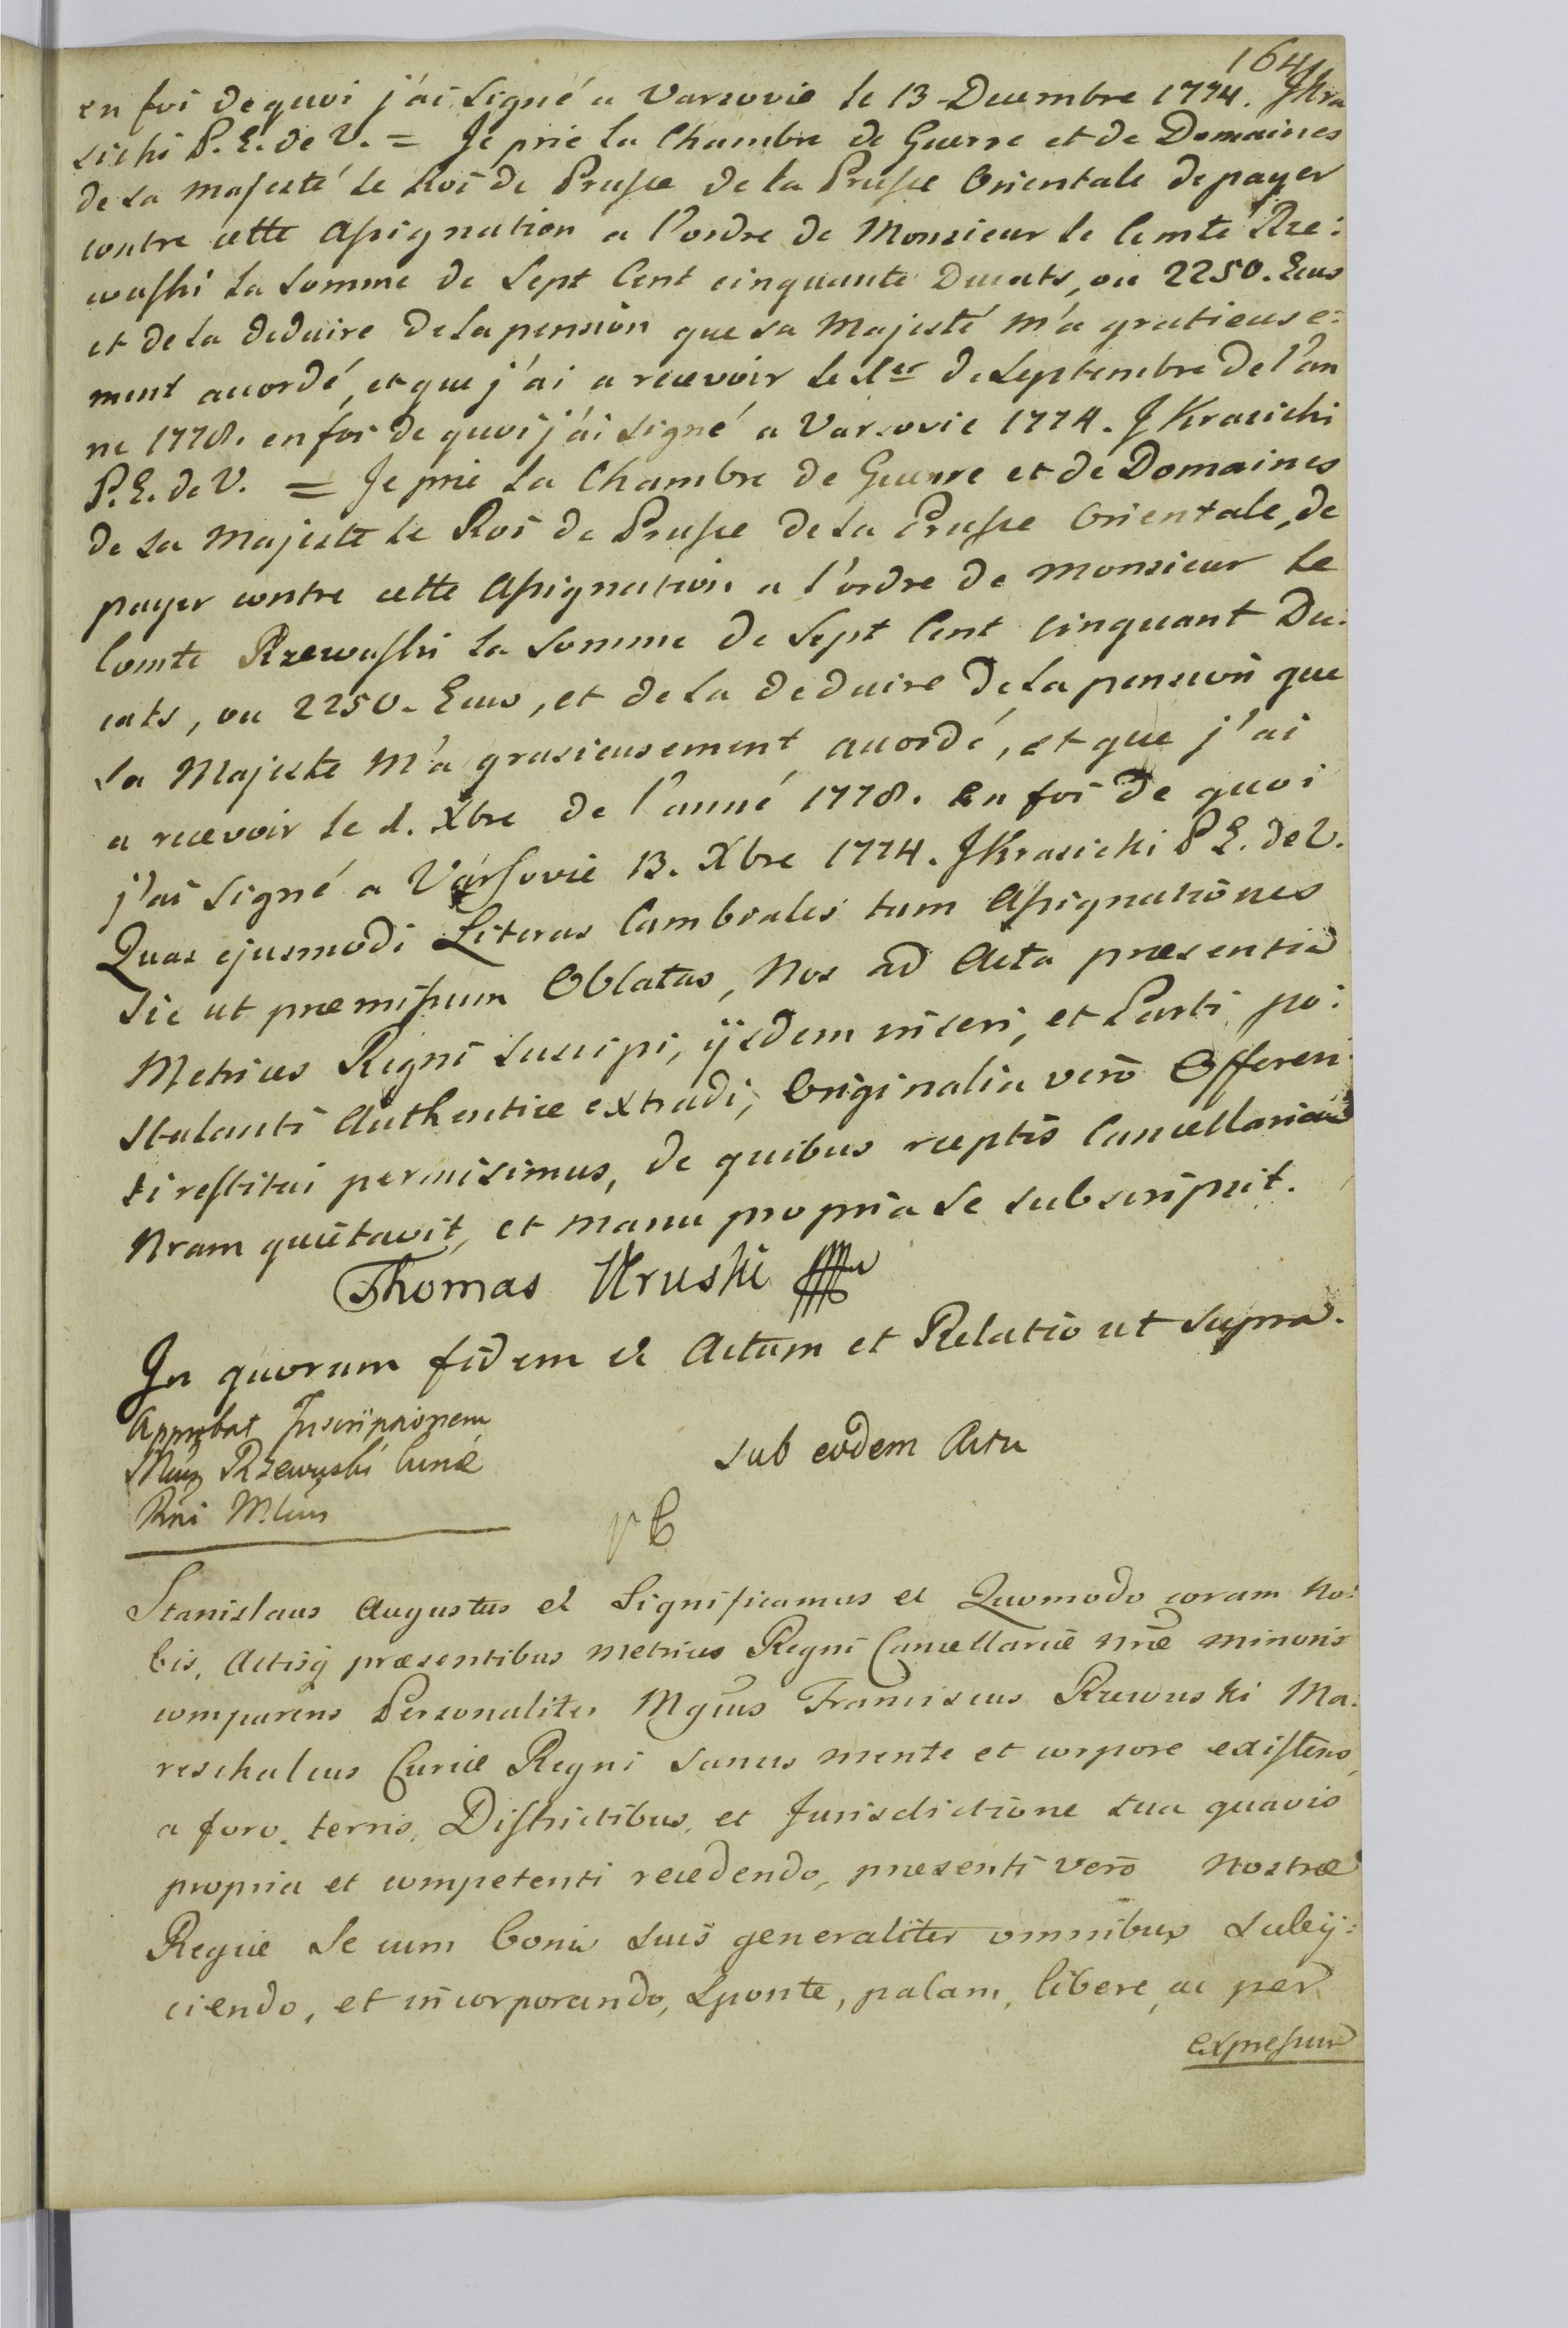 164
en foi de quoi j'ai signé a Varsovie le 13 Decembre 1774. JKra
sicki P. E. de V. = Je prie la Chambre de Guerre et de Domaines
de sa majesté le Roi de Prusse de la Prusse Orientale de payer
contre cette Assignation a l'ordre de Monsieur le Comte Rze:
wuski la Somme de Sept Cent cinquante Ducats, ou 2250. Ecus
et de la deduire de la pension que sa Majesté m'a gratieuse:
ment accordé, et que j'ai a recevoir le 1er de Septembre de l'an
ne 1778. en foi de quoi j'ai signé a Varsovie 1774. J Krasicki
P. E. de V. = Je prie la Chambre de Guerre et de Domaines
de sa Majeste le Roi de Prusse de la Prusse Orientale, de
payer contre cette Assignation a l'ordre de monsieur le
Comte Rzewuski la Somme de Sept Cent Cinquant Du:
cats, ou 2250. Ecus, et de la deduire de la pension que
sa Majeste m'a grasieusement accordé, et que j'ai
a recevoir le 1. Xbre de l'anné 1778. En foi de quoi
j'ai signé a Varsovie 13. Xbre 1774. JKrasicki P E. de V.
Quas ejusmodi Literas Cambiales tum Assignationes
sic ut præmissum Oblatas, Nos ad Acta præsentia
Metrices Regni suscipi, ijsdem inseri, et Parti po:
stulanti Authentice extradi, Originalia vero Offeren
ti restitui permisimus, de quibus receptis Cancellariam
Nram quietavit, et manu propria se subscripsit.
Thomas Uruski
In quorum fidem et Actum et Relatio ut supra.
Approbat Inscriptionem
Mcus Rzewuski Curiæ
Rni Mlcus
sub eodem Actu
Stanislaus Augustus et Significamus et Quomodo coram No:
bis, Actisq præsentibus Metrices Regni Cancellariæ nræ minoris
comparens Personaliter Mgcus Franciscus Rzewuski Ma:
reschalcus Curiæ Regni sanus mente et corpore existens,
a foro, terris, Districtibus, et Jurisdictione sua quavis
propria et competenti recedendo, præsenti vero Nostræ
Regiæ se cum bonis suis generaliter omnibus subij:
ciendo, et incorporando, Sponte, palam, libere, ac per
expressum